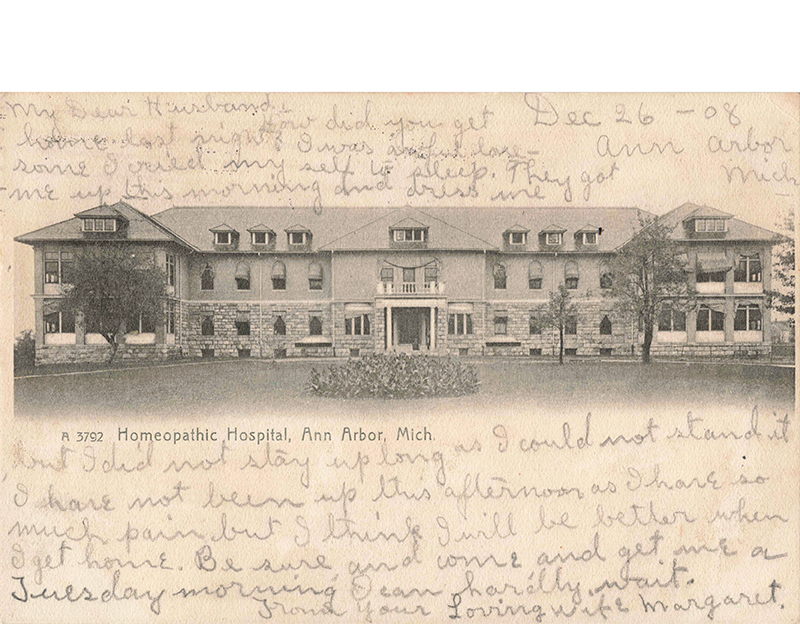 Dec 26 - 08
Ann Arbor
Mich
My Dear Husband.
How did you get
home last night? I was awful lone-
some I cried my self to sleep. They got
me up this morning and dress me
A 3792 Homeopathic Hospital, Ann Arbor, Mich.
but I did not stay up long as I could not stand it
I have not been up this afternoon as I have so
much pain but I think I will be better when
I get home. Be sure and come and get me a
Tuesday morning I can hardly wait.
From Your Loving wife Margaret.